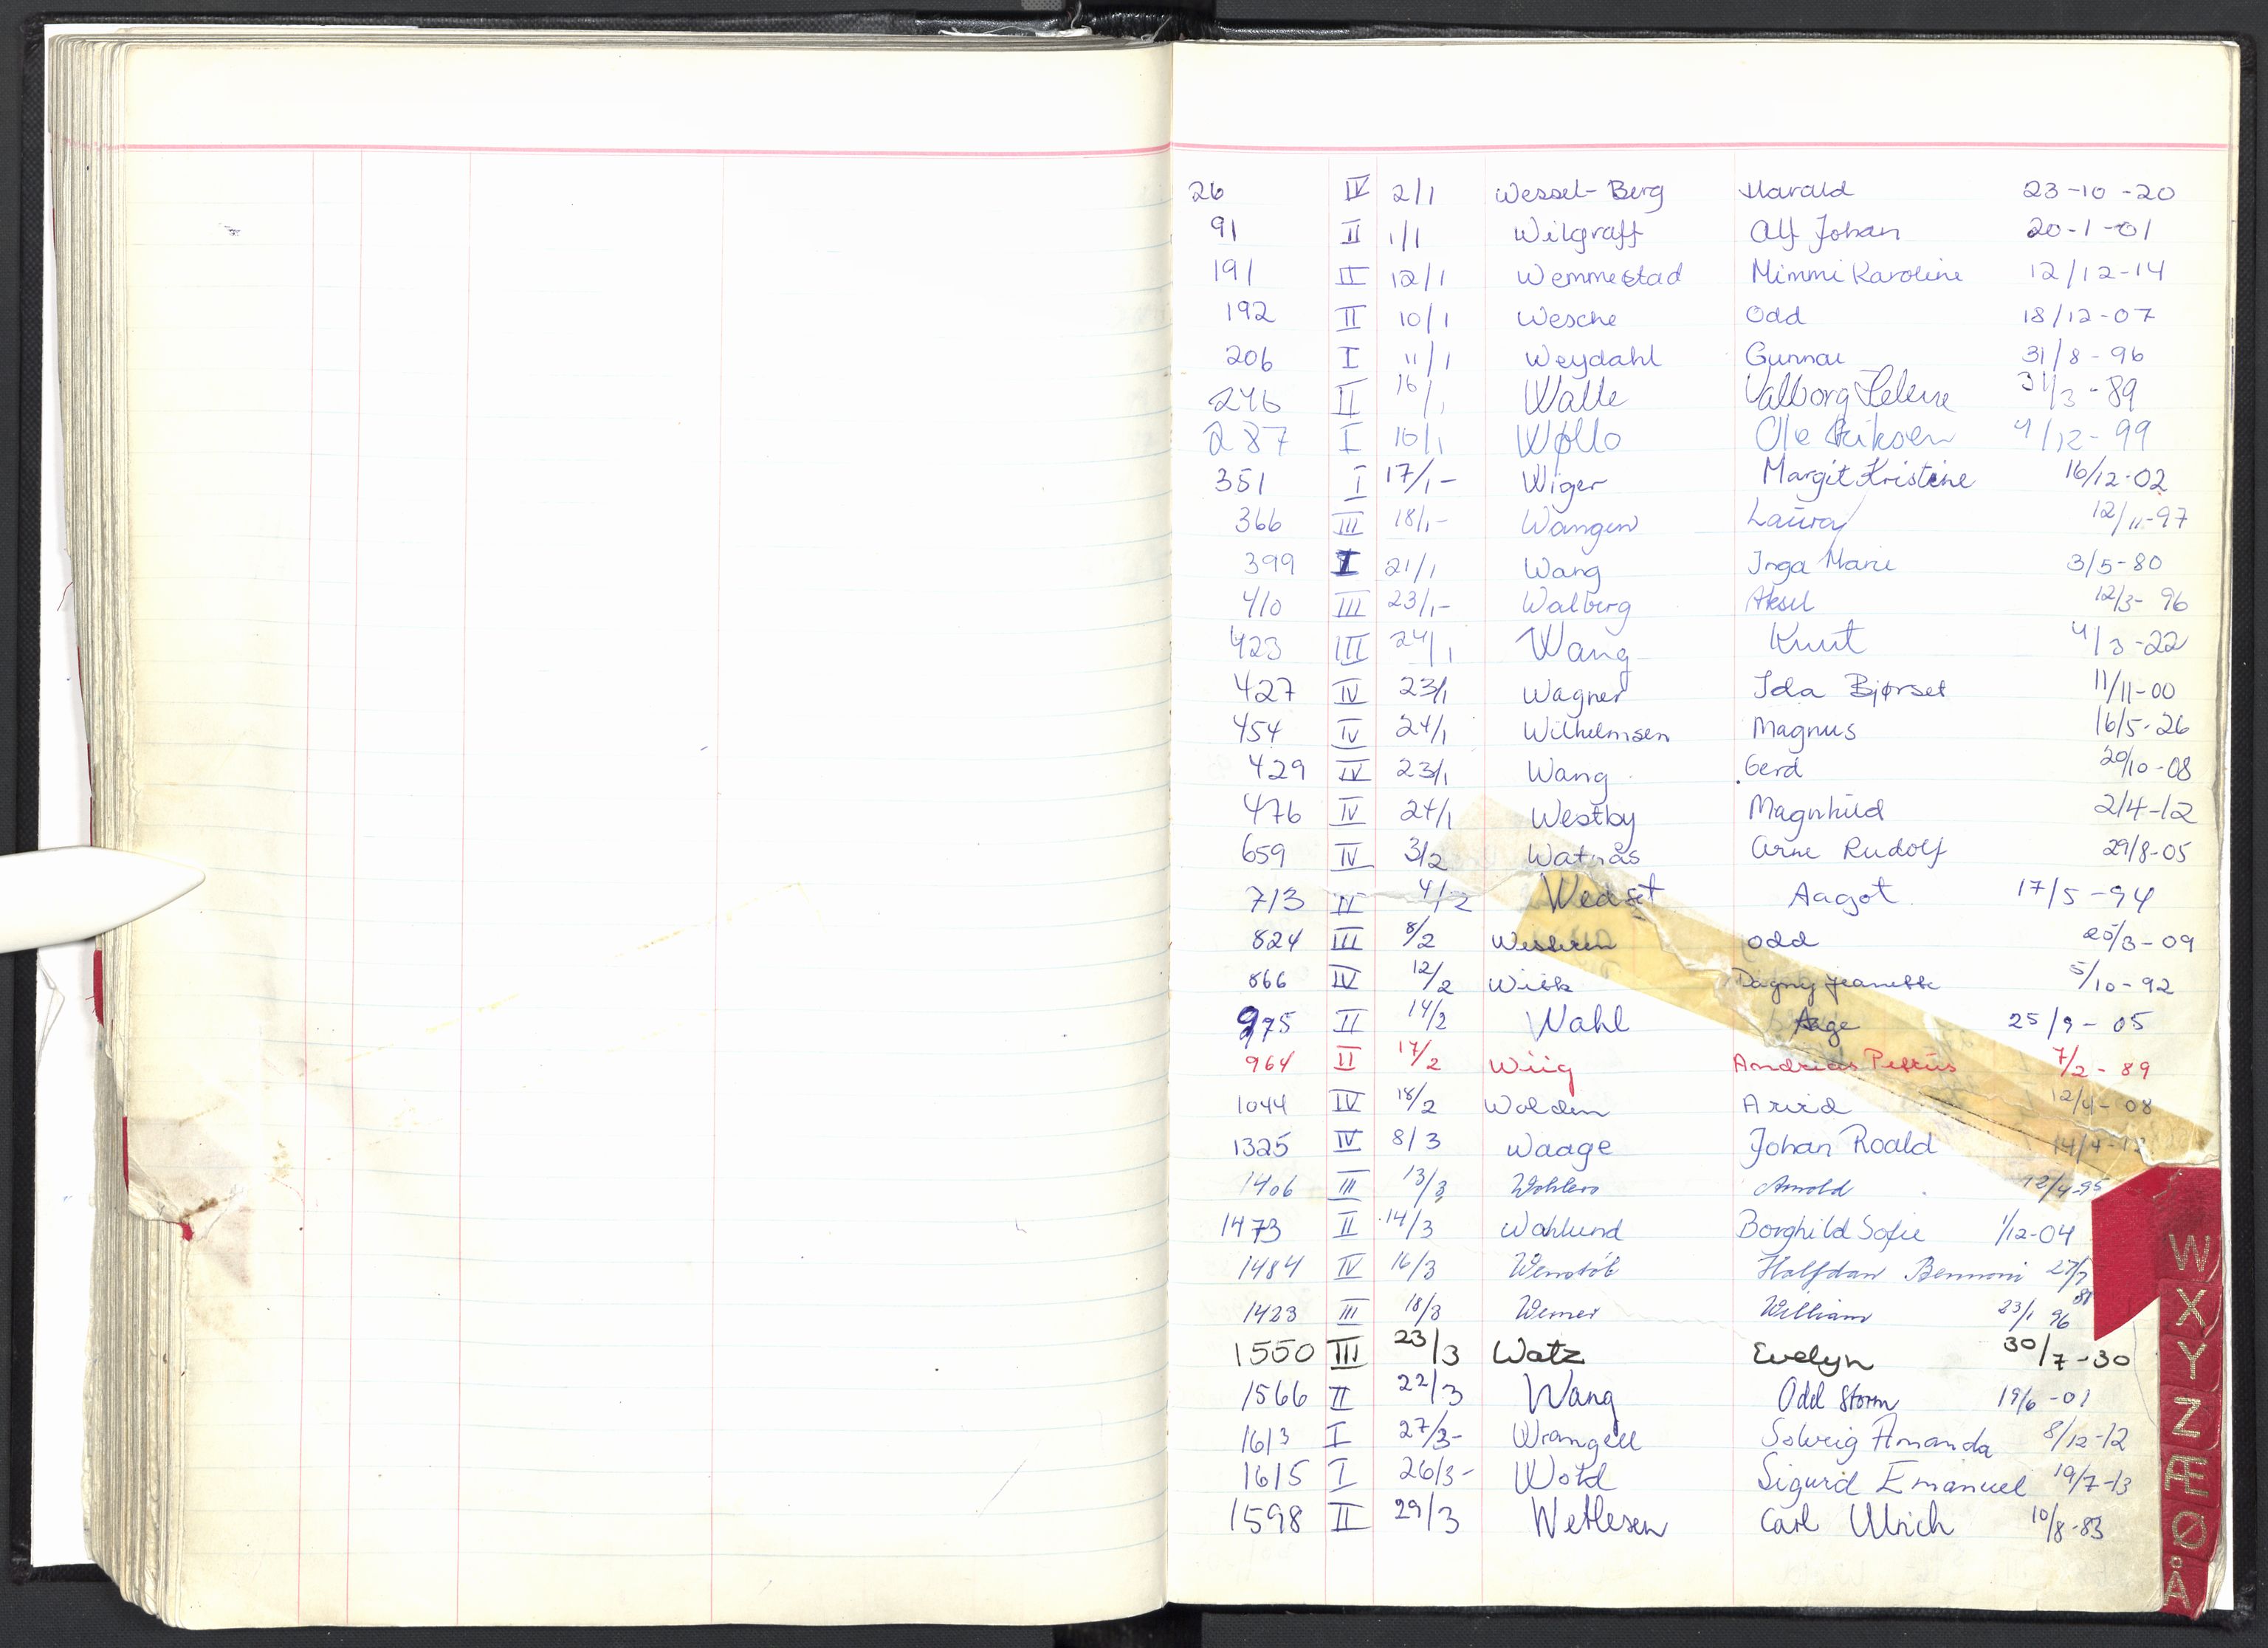 26 IV 2/1 Wessel-Berg Harald 23-10-20
91 II 1/1 Wilgraff Alf Johan 20-1-01
191 II 12/1 Wemmestad Mimmi Karoline 12/12-14
192 II 10/1 Wesche Odd 18/12-07
206 I 11/1 Weydahl Gunnar 31/8-96
246 II 16/1 Walle Valborg Helene 31/3-89
287 I 16/1 Wøllo Ole Eriksen 4/12-99
351 I 17/1- Wiger Margit Kristine 16/12-02
366 III 18/1- Wangen Laura 12/11-97
399 I 21/1 Wang Inga Marie 3/5-80
410 III 23/1- Walberg Aksel 12/3-96
423 III 24/1 Wang Knut 4/3-22
427 IV 23/1 Wagner Ida Bjørset 11/11-00
454 IV 24/1 Wilhelmsen Magnus 16/5-26
429 IV 23/1 Wang Gerd 20/10-08
476 IV 24/1 Westby Magnhild 2/4-12
659 IV 3/2 Watnås Arne Rudolf 29/8-05
713 II 4/2 Wedset Aagot 17/5-94
824 III 8/2 Odd 25/3-09
866 IV 12/2 Wiik Dagny Jeanette 5/10-92
975 II 14/2 Wahl Aage 25/9-05
964 II 17/2 Wiig Andreas Petrus 7/2-89
1044 IV 18/2 Wolden Arvid 12/4-08
1325 IV 8/3 Waage Johan Roald
1406 III 13/3 Wohlers Arnold 12/4-95
1473 II 14/3 Wahlund Borghild Sofie 1/12-04
1484 IV 16/3 Halfdan Bennoni 27/7 81
1423 III 18/3 Werner William 23/1 96
1550 III 23/3 Watz Evelyn 30/7-30
1566 II 22/3 Wang Odd Storm 19/6-01
1613 I 27/3- Wrangell Solveig Amanda 8/12-12
1615 I 26/3- Wold Sigurd Emanuel 19/7-13
1598 II 29/3 Wetlesen Carl Ulrich 10/8-83
W
X
Y
Z
Æ
Ø
Å